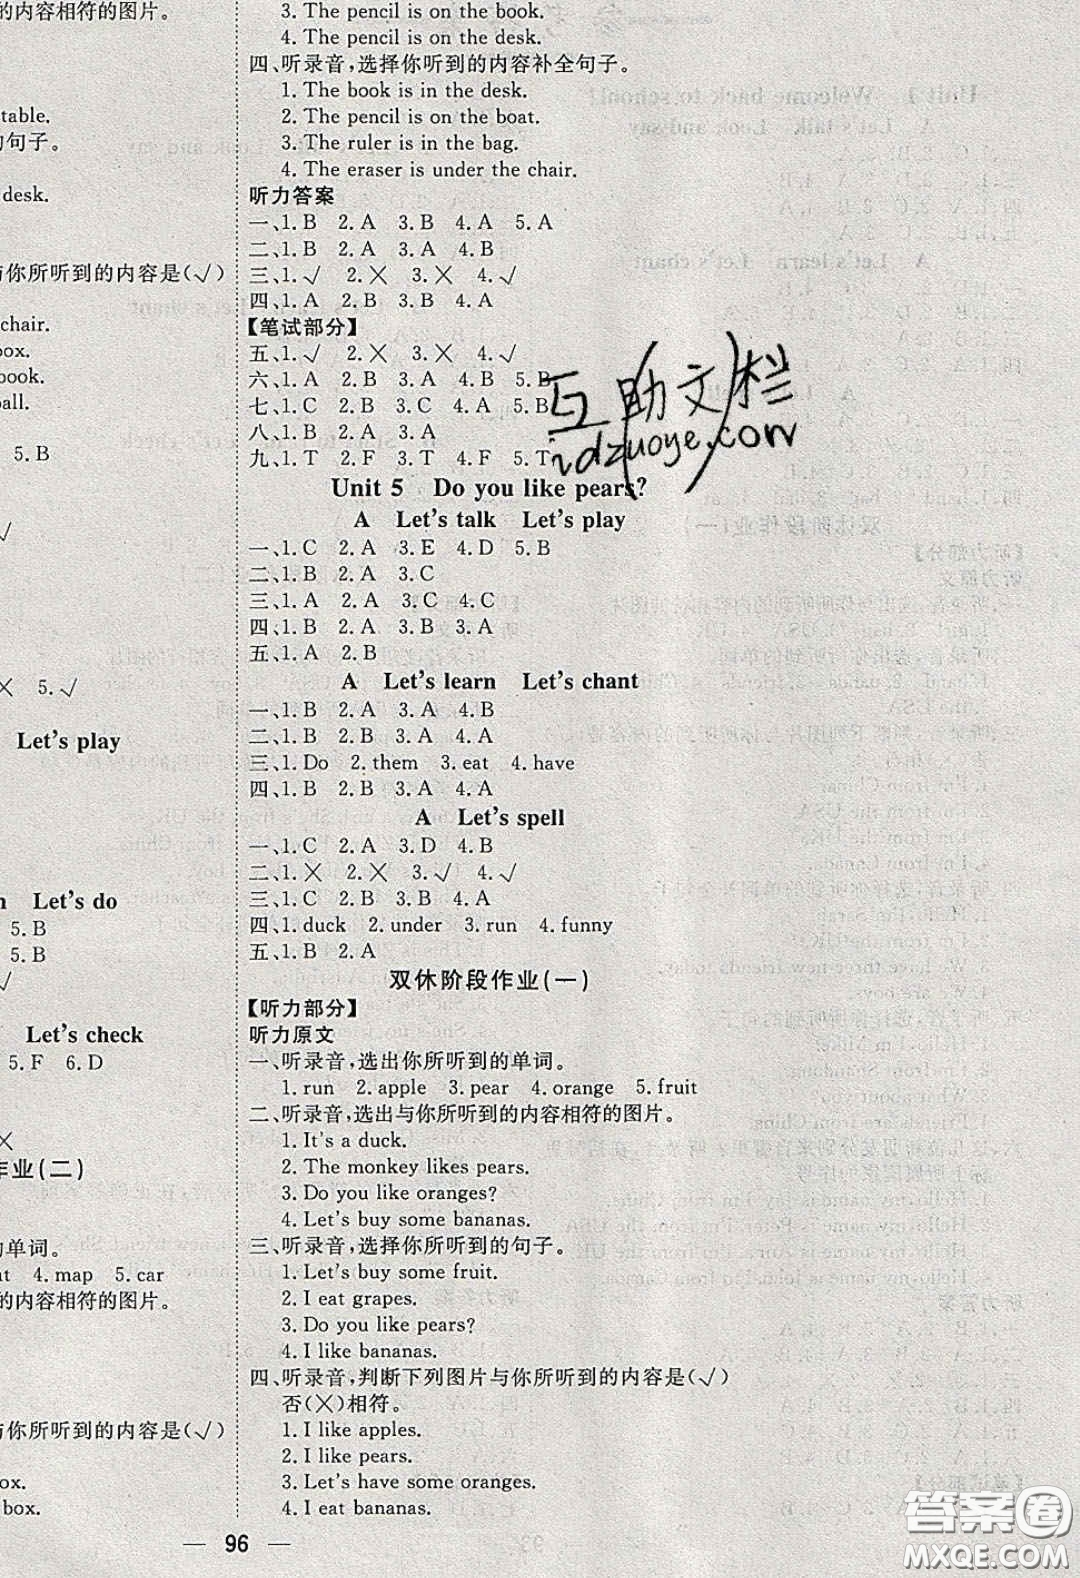 的内容相符的图片。
table.
句子。
desk.
与你所听到的内容是(√)
chair.
box.
book.
ball.
5. B
√
× 5. √
Let's play
Let's do
5. B
5. B
Let's check
5. F 6. D
×
作业(二)
的单词。
4. map 5. car
的内容相符的图片。
与你所听到的内容是(√)
box.
box.
3. The pencil is on the book.
4. The pencil is on the desk.
四、听录音,选择你听到的内容补全句子。
1. The book is in the desk.
2. The pencil is on the boat.
3. The ruler is in the bag.
4. The eraser is under the chair.
听力答案
一、1. B 2. A 3. B 4. A 5. A
二、1. B 2. A 3. A 4. B
三、1. √ 2. × 3. × 4. √
四、1. A 2. B 3. B 4. A
【笔试部分】
五、1. √ 2. × 3. × 4. √
六、1. A 2. B 3. A 4. B 5. B
七、1. C 2. B 3. C 4. A 5. B
八、1. B 2. A 3. A
九、1. T 2. F 3. T 4. F 5. T
Unit 5 Do you like pears?
A Let's talk Let's play
一、1. C 2. A 3. E 4. D 5. B
二、1. B 2. A 3. C
三、1. A 2. A 3. C 4. C
四、1. B 2. A 3. B 4. A
五、1. A 2. B
A Let's learn Let's chant
一、1. B 2. A 3. A 4. B
二、1. B 2. A 3. A 4. B
三、1. Do 2. them 3. eat 4. have
四、1. B 2. B 3. A 4. A
A Let's spell
一、1. C 2. A 3. D 4. B
二、1. × 2. × 3. √ 4. √
三、1. C 2. A 3. A 4. B
四、1. duck 2. under 3. run 4. funny
五、1. B 2. A
双休阶段作业(一)
【听力部分】
听力原文
一、听录音,选出你所听到的单词。
1. run 2. apple 3. pear 4. orange 5. fruit
二、听录音,选出与你所听到的内容相符的图片。
1. It's a duck.
2. The monkey likes pears.
3. Do you like oranges?
4. Let's buy some bananas.
三、听录音,选择你所听到的句子。
1. Let's buy some fruit.
2. I eat grapes.
3. Do you like pears?
4. I like bananas.
四、听录音,判断下列图片与你所听到的内容是(√)
否(×)相符。
1. I like apples.
2. I like pears.
3. Let's have some oranges.
4. I eat bananas.
— 96 —
互助文栏
idzuoye.com
答案圈
MXQE.COM